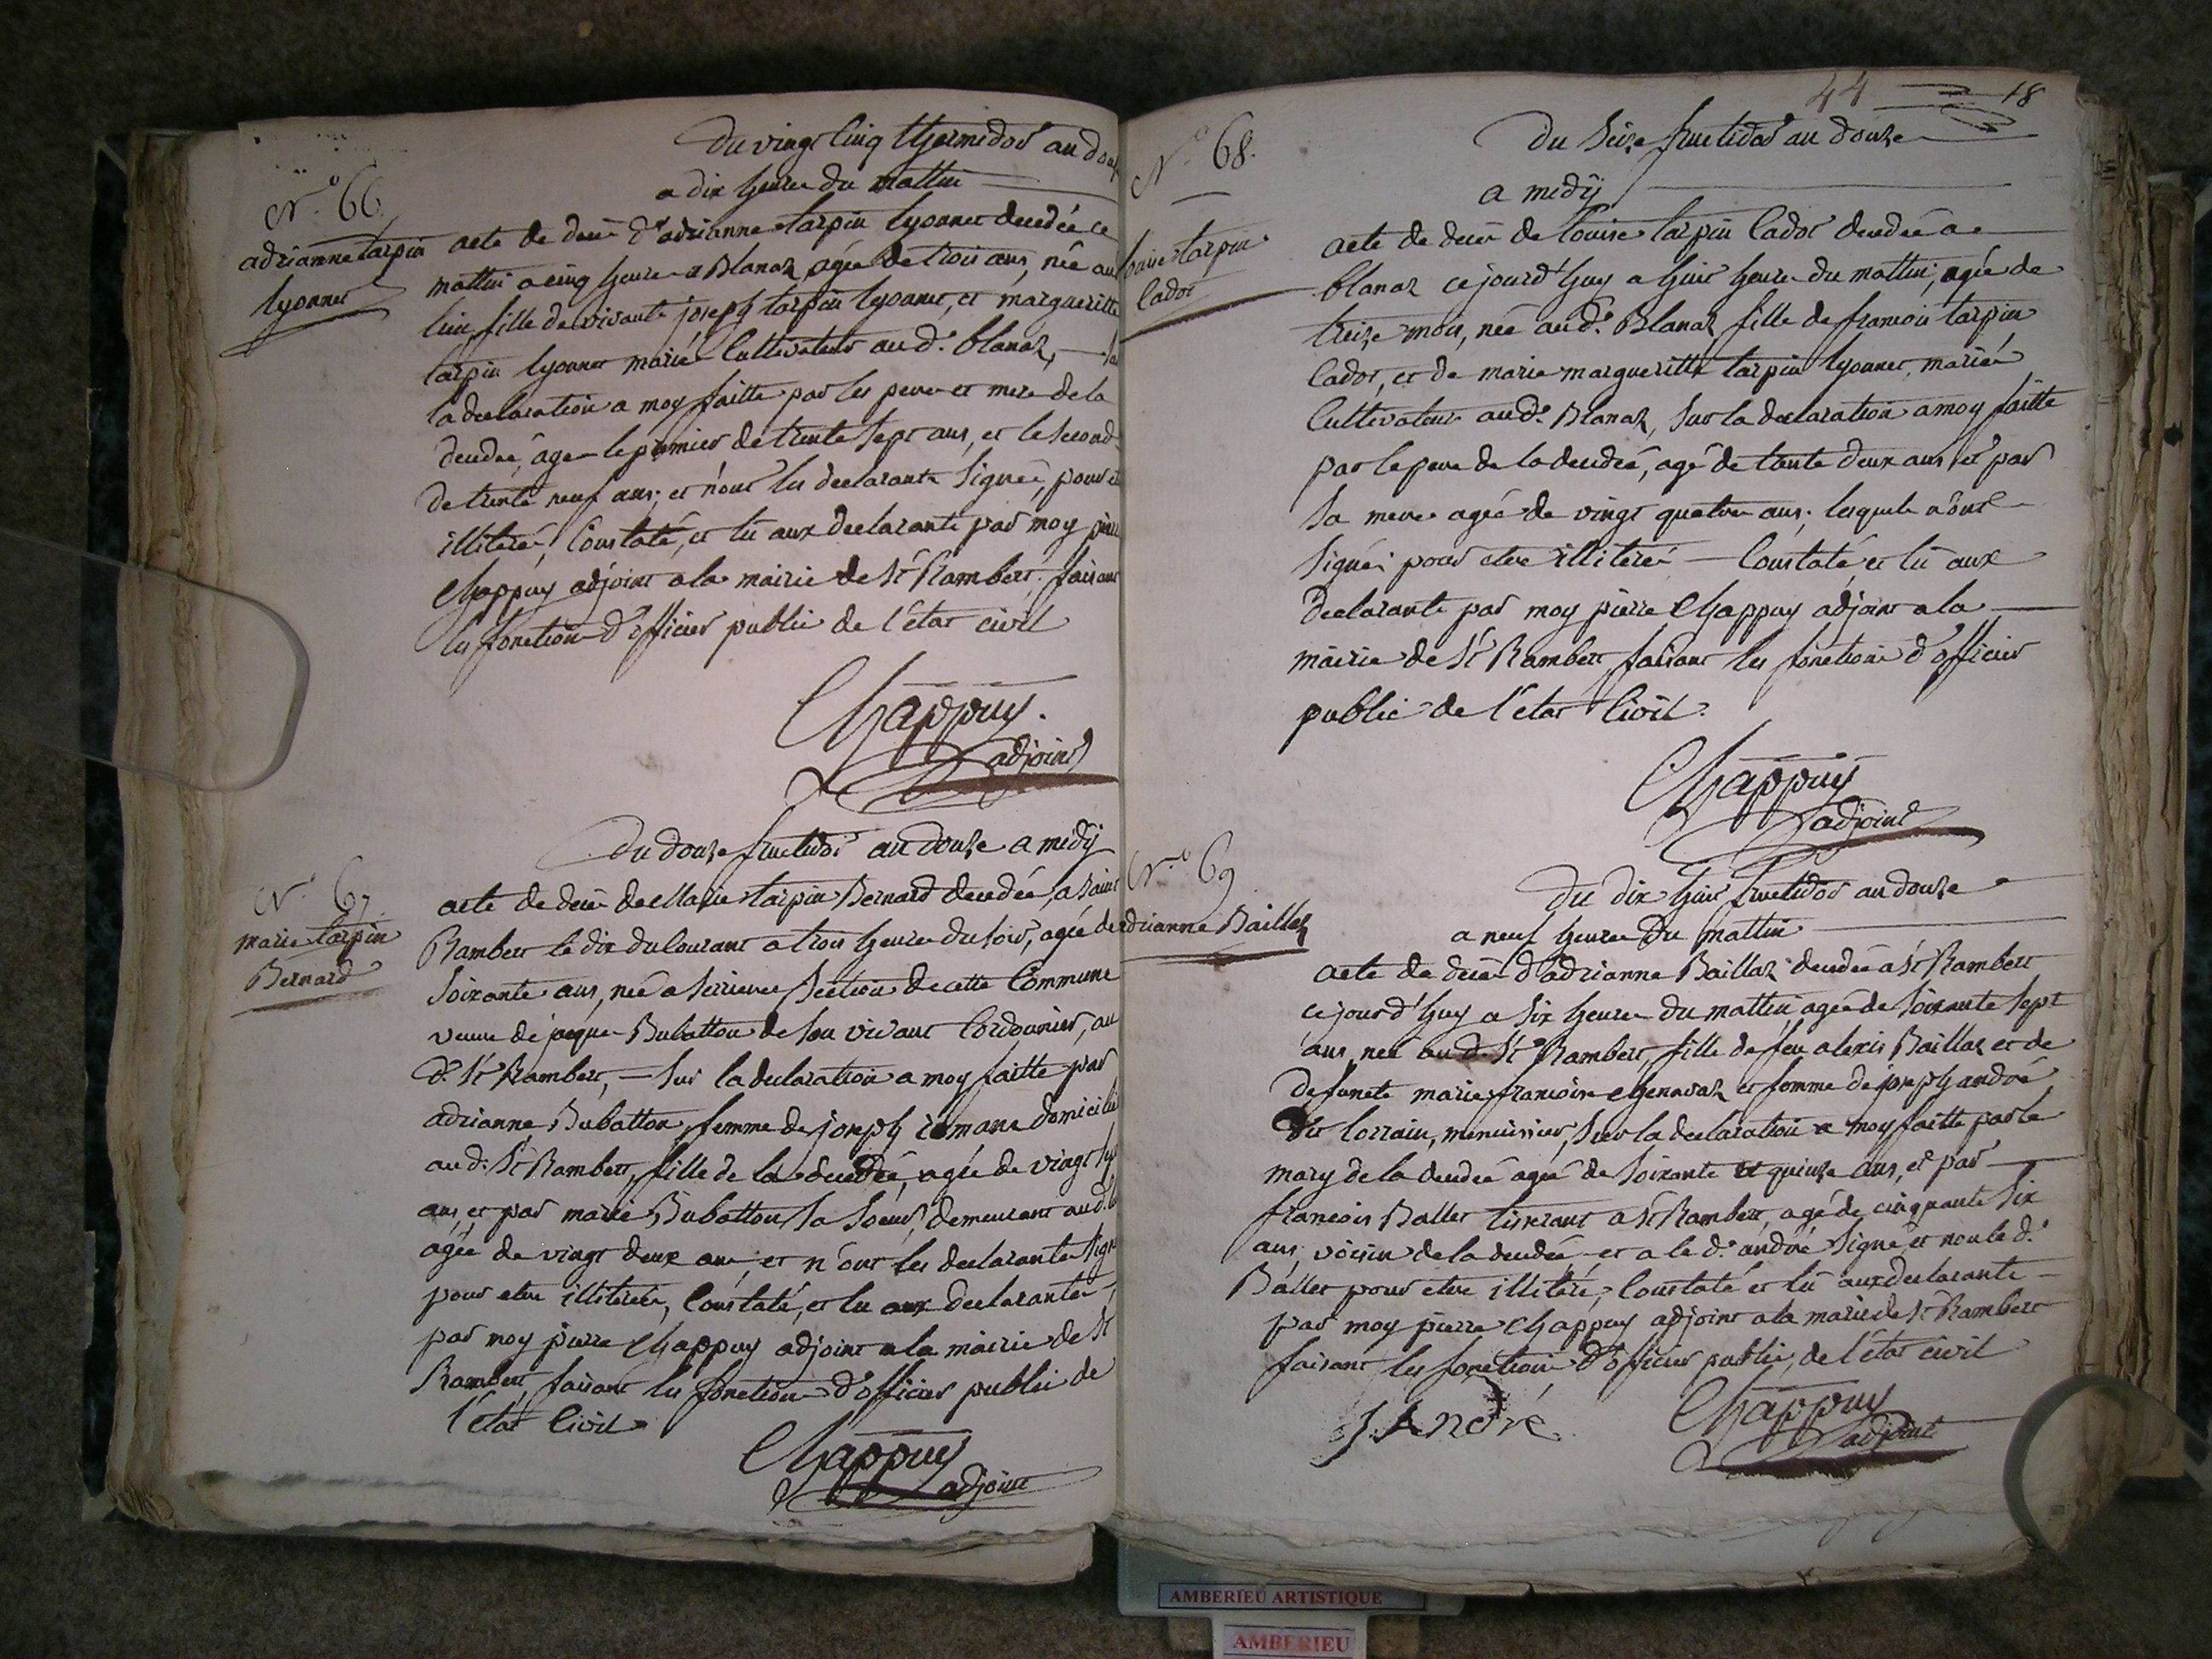 N.o 66.
adrianne tarpin
lyonnet
Du vingt Cinq thermidor an douze
a dix heure du mattin
acte de decè d'adrianne tarpin lyonnet decedée ce
mattin a cinq heure a Blanaz, agée de trois ans, née au
lieu fille de vivants joseph tarpin lyonnet, et margueritte
tarpin lyonnet mariés Cultivateurs au d.t blanaz, — sur
la declaration a moy faitte par les pere et mere de la
decedée, agés le premier de trente sept ans, et le second
de trente neuf ans; et n'ont les declarants signés, pour etre
illiterés, Constaté, et lü aux declarants par moy pierre
Chappuy adjoint a la mairie de St Rambert, faisant
les fonctions d'officier public de l'état civil
Chappuy.
adjoint
N.o 67.
marie tarpin
Bernard
Du douze fructidor an douze a midÿ
acte de decè de Marie tarpin Bernard decedée, a saint
Rambert le dix du Courant a trois heure du soir, agée de
soixante ans, née a serrieres section de cette Commune
veuve de jaque Bubatton de son vivant Cordonnier, au
d.t St Rambert, — sur la declaration a moy faitte par
adrianne Bubatton, femme de joseph domicilié
au d.t St Rambert, fille de la decedée, agée de vingt sept
ans, et par marie Bubatton sa soeur, demeurant au d.t lieu
agée de vingt deux ans, et n'ont les declarantes signé
pour etre illiterées, Constaté, et lu aux declarantes,
par moy pierre Chappuy adjoint a la mairie de St
Rambert, faisant les fonctions d'officier public de
l'état Civil
Chappuy
adjoint
44
18
N.o 68.
Louise tarpin
Cador
Du seize fructidor an douze
a midÿ
acte de decè de Louise tarpin Cador decedée a
blanaz ce jourd'huy a huit heure du mattin, agée de
treize mois, née au d.t Blanaz fille de francois tarpin
Cador, et de marie margueritte tarpin lyonnet, mariés
Cultivateurs au d.t Blanaz, sur la declaration a moy faitte
par le pere de la decedée, agé de trente deux ans et par
sa mere agée de vingt quatre ans; lesquels n'ont
signés pour etre illiterés — Constaté et lü aux
declarants par moy pierre Chappuy adjoint a la
mairie de St Rambert, faisant les fonctions d'officier
public de l'état Civil.
Chappuy
adjoint
N.o 69
adrianne Baillaz
Du dix huit fructidor an douze
a neuf heures du mattin
acte de decè d'adrianne Baillaz decedée a St Rambert
ce jourd'huy a six heure du mattin agée de soixante sept
ans, née au d.t St Rambert, fille de feu alexis Baillaz et de
defuncte marie francoise Chenavaz et femme de joseph andré
dit lorrain, menuisier, sur la declaration a moy faitte par le
mary de la decedée agé de soixante et quinze ans, et par
francois Ballet tisserant a St Rambert, agé de cinquante six
ans, voisin de la decedée et a le d.t andré signé et non le d.t
Ballet pour etre illiteré, Constaté et lü aux declarants
par moy pierre Chappuy adjoint a la mairie de St Rambert
faisant les fonctions d'officier public, de l'état civil
J. André
Chappuy
adjoint
AMBERIEU ARTISTIQUE
AMBERIEU